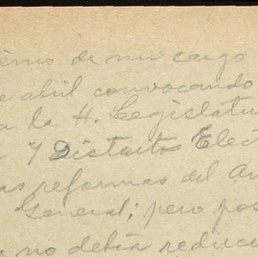 de mi cargo
e abil convocando
a la H. Legislatu
7 Distritos Elect
as reformas del
General; pero pos
no debía reduc